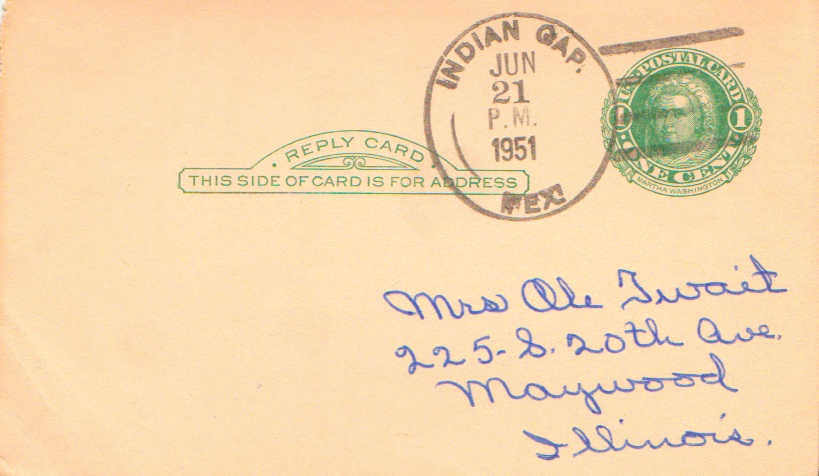 INDIAN GAP,
JUN
21
P.M.
1951
U.S. POSTAL CARD
1 1
ONE CENT
MARTHA WASHINGTON
REPLY CARD
THIS SIDE OF CARD IS FOR ADDRESS
Mrs Ole Twait
225-S. 20th Ave.
Maywood
Illinois.